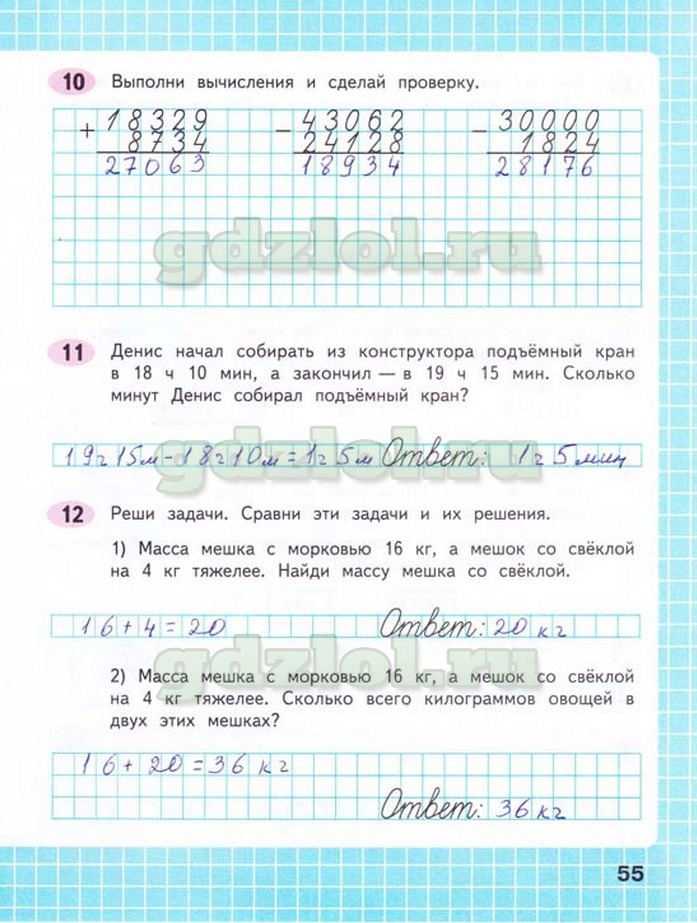 10 Выполни вычисления и сделай проверку.
+ 18329 - 43062 - 30000
8734 24128 1824
27063 18934 28176
gdzlol.ru
11 Денис начал собирать из конструктора подъёмный кран
в 18 ч 10 мин, а закончил — в 19 ч 15 мин. Сколько
минут Денис собирал подъёмный кран?
gdzlol.ru
19ч15м - 18ч10м = 1ч5м Ответ: 1ч5мин
12 Реши задачи. Сравни эти задачи и их решения.
1) Масса мешка с морковью 16 кг, а мешок со свёклой
на 4 кг тяжелее. Найди массу мешка со свёклой.
16 + 4 = 20 Ответ: 20 кг
gdzlol.ru
2) Масса мешка с морковью 16 кг, а мешок со свёклой
на 4 кг тяжелее. Сколько всего килограммов овощей в
двух этих мешках?
16 + 20 = 36 кг
Ответ: 36 кг
55